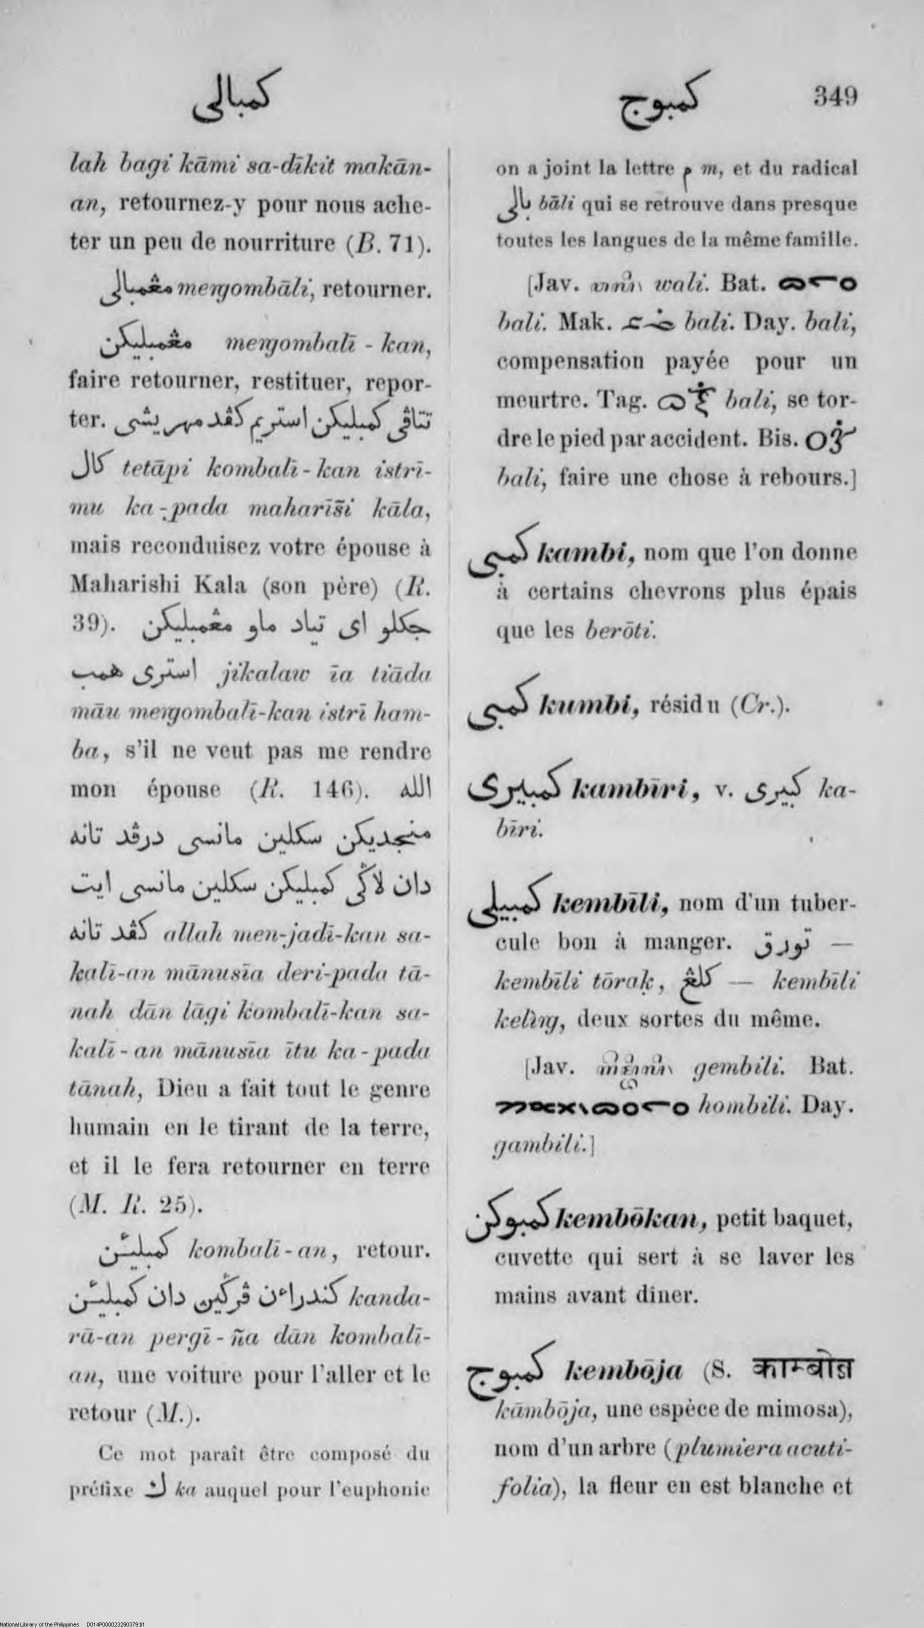 كمبالى
كمبوج
349
lah bagi kāmi sa-dīkit makān-
an, retournez-y pour nous ache-
ter un peu de nourriture (B. 71).
مڠمبالى meṅgombāli, retourner.
مڠمبليكن meṅgombalī-kan,
faire retourner, restituer, repor-
ter. تتاڤى كمبليكن استريم كڤد مهريشى
كال tetāpi kombalī-kan istrī-
mu ka-pada maharīši kāla,
mais reconduisez votre épouse à
Maharishi Kala (son père) (R.
39). جكلو اى تياد ماو مڠمبليكن
استرى همب jikalaw īa tiāda
māu meṅgombalī-kan istrī ham-
ba, s'il ne veut pas me rendre
mon épouse (R. 146). الله
منجديكن سكلين مانسى درڤد تانه
دان لاڬى كمبليكن سكلين مانسى ايت
كڤد تانه allah men-jadī-kan sa-
kalī-an mānusīa deri-pada tā-
nah dān lāgi kombalī-kan sa-
kalī-an mānusīa ītu ka-pada
tānah, Dieu a fait tout le genre
humain en le tirant de la terre,
et il le fera retourner en terre
(M. R. 25).
كمبليئن kombalī-an, retour.
كندراءن ڤرڬين دان كمبليئن kanda-
rā-an pergī-ña dān kombalī-
an, une voiture pour l'aller et le
retour (M.).
Ce mot paraît être composé du
préfixe ك ka auquel pour l'euphonie
on a joint la lettre م m, et du radical
بالى bāli qui se retrouve dans presque
toutes les langues de la même famille.
[Jav. wali. Bat.
bali. Mak. bali. Day. bali,
compensation payée pour un
meurtre. Tag. bali, se tor-
dre le pied par accident. Bis.
bali, faire une chose à rebours.]
كمبى kambi, nom que l'on donne
à certains chevrons plus épais
que les berōti.
كمبى kumbi, résidu (Cr.).
كمبيرى kambīri, v. كبيرى ka-
bīri.
كمبيلى kembīli, nom d'un tuber-
cule bon à manger. تورق —
kembīli tōraḳ, كلڠ — kembīli
keliṅg, deux sortes du même.
[Jav. gembili. Bat.
hombili. Day.
gambili.]
كمبوكن kembōkan, petit baquet,
cuvette qui sert à se laver les
mains avant dîner.
كمبوج kembōja (S. काम्बोज
kāmbōja, une espèce de mimosa),
nom d'un arbre (plumiera acuti-
folia), la fleur en est blanche et
National Library of the Philippines